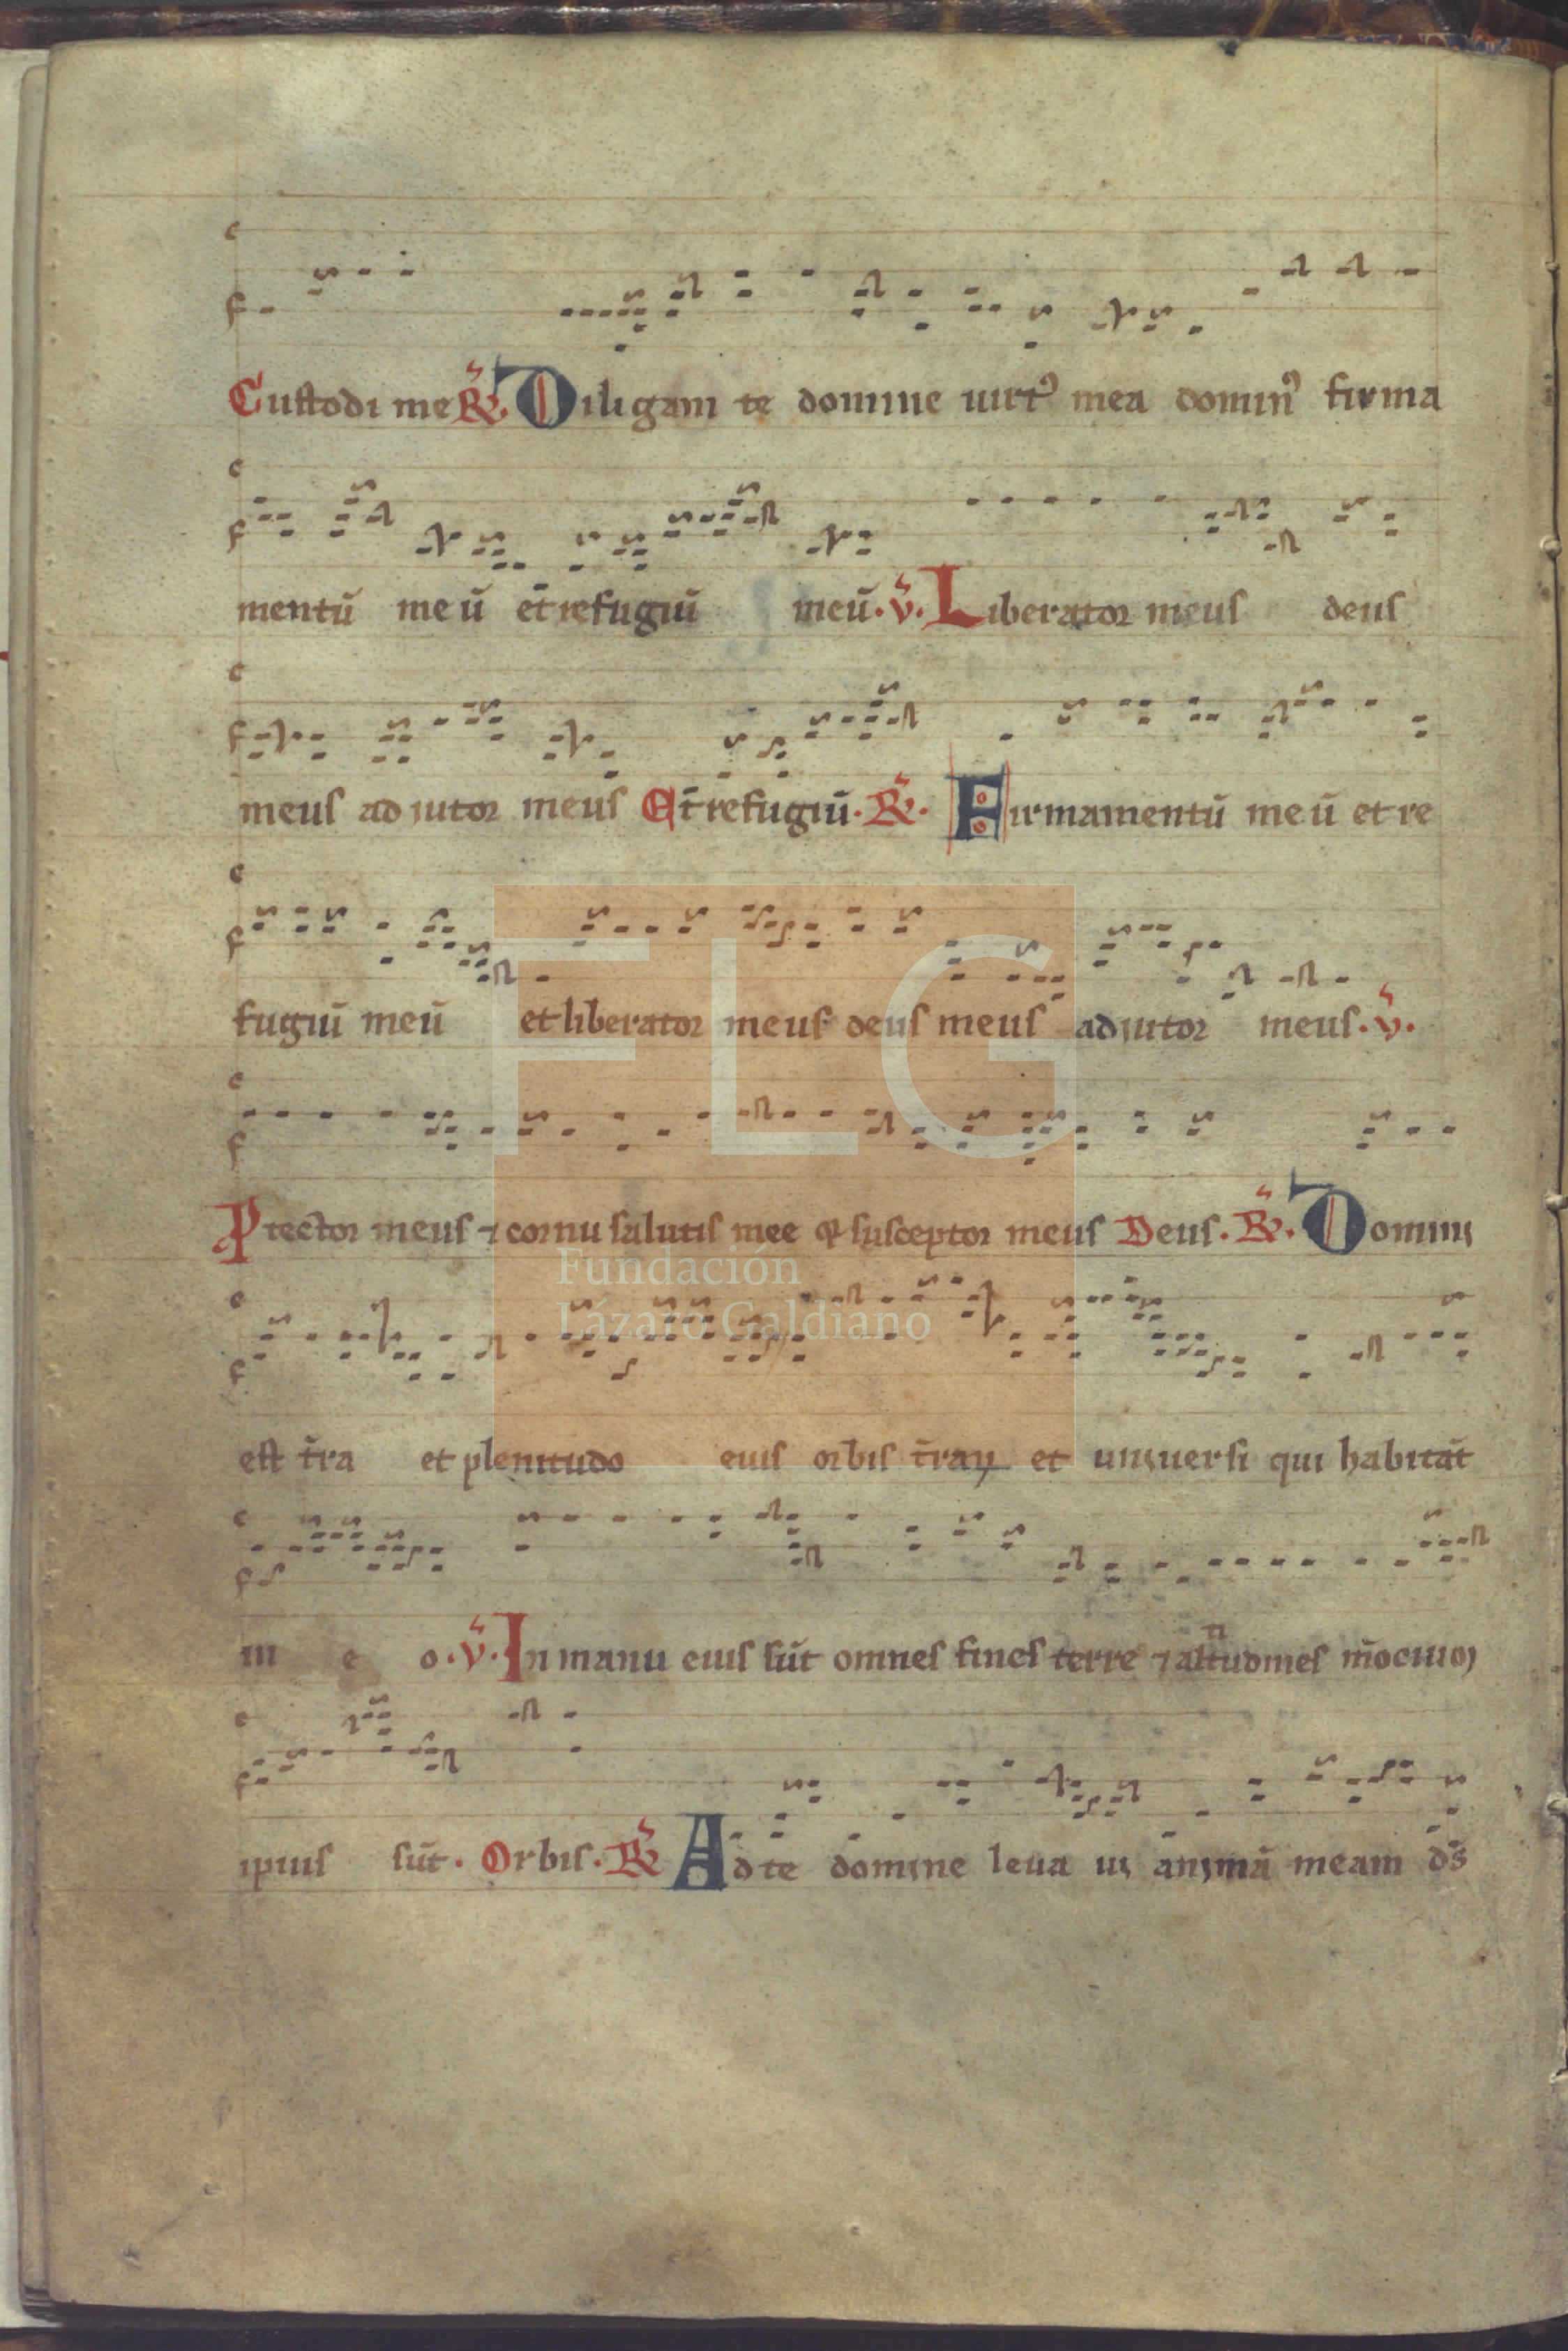 Custodi me R̃. Diligam te domine uirt⁹ mea domin⁹ firma
mentū me ū et refugiū meū. ṽ. Liberator meus deus
meus ad iutor meus Et refugiū. R̃. Firmamentū me ū et re
fugiū meū et liberator meus deus meus adiutor meus. ṽ.
Ptector meus ⁊ cornu salutis mee ⁊ susceptor meus Deus. R̃. Domini
est t̄ra et plenitudo eius orbis t̄raꝝ et uniuersi qui habitāt
in e o. ṽ. In manu eius sūt omnes fines terre ⁊ altitudines
ipius sūt. Orbis. R̃ Ad te domine leua ui animā meam ds̄
FLG
Fundación
Lázaro Galdiano